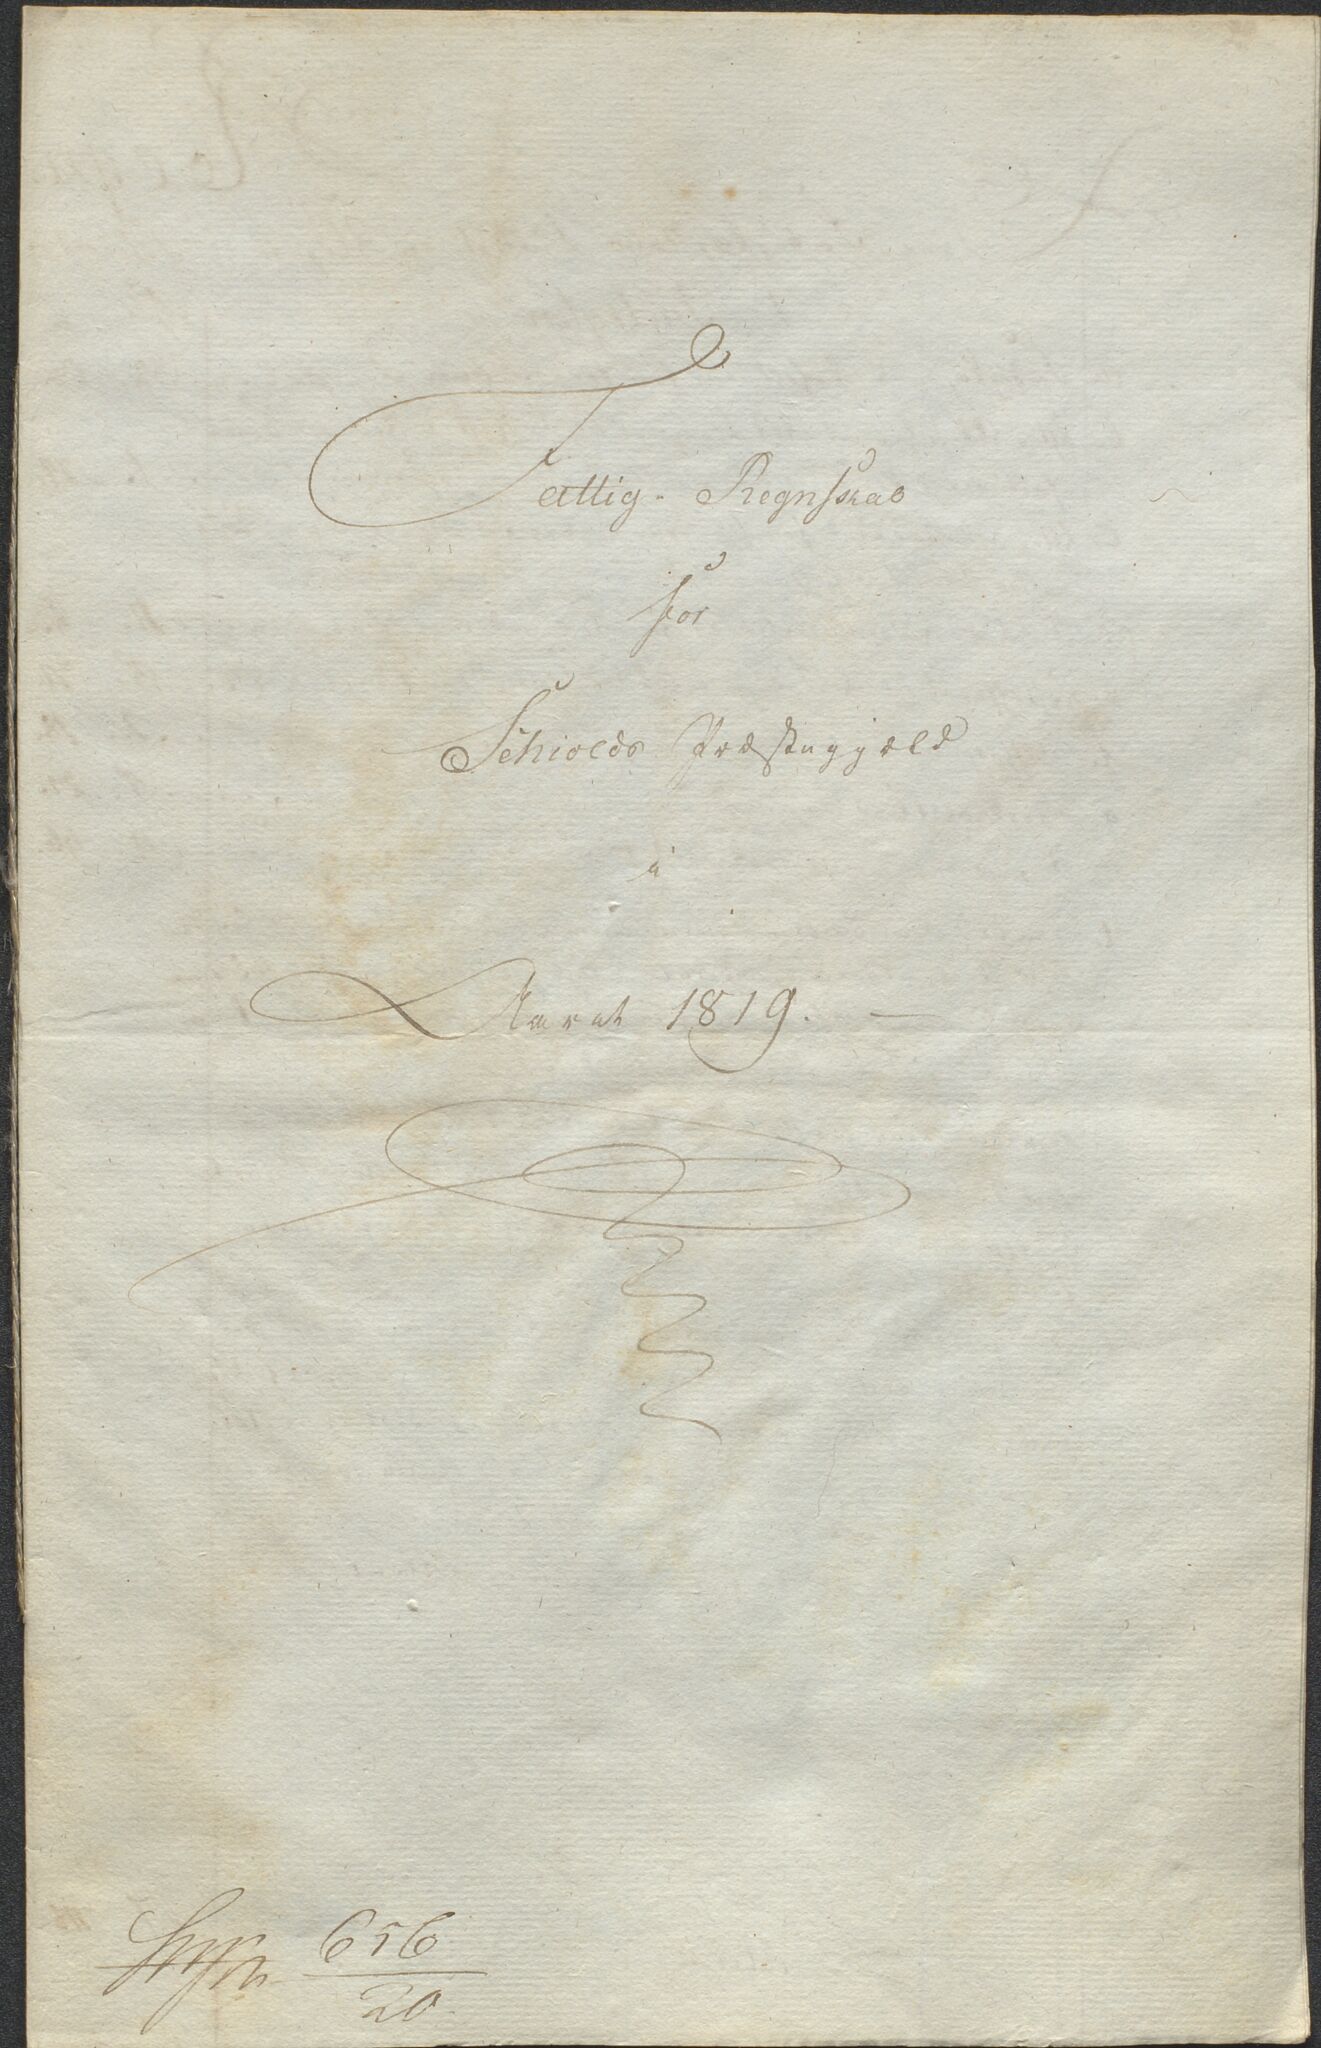 Fattig- Regnskab
for
Schiolds Præstegjeld
i
Aaret 1819.
656
20